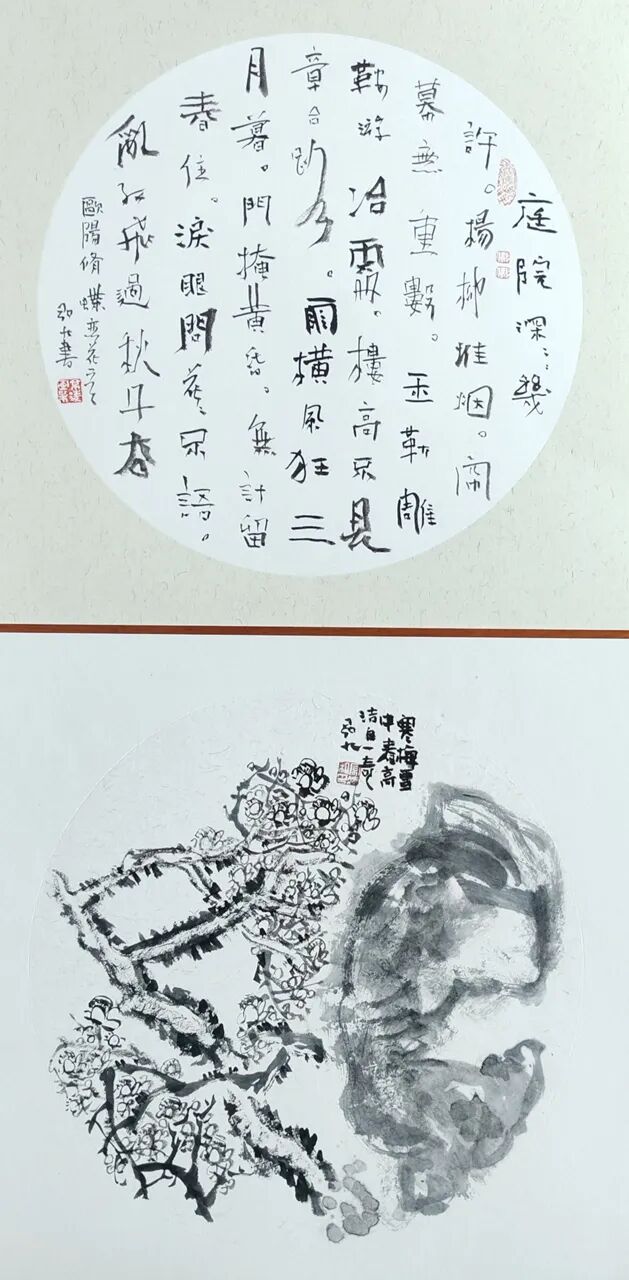 庭院深ミ幾
許。楊柳堆烟。帘
幕無重數。玉勒雕
鞍游冶處。樓高不見
章台路。雨橫風狂三
月暮。門掩黃昏。無計留
春住。淚眼問花ミ不語。
亂紅飛過秋千去
歐陽脩蝶恋花
書
寒梅雪
中春高
洁自一奇